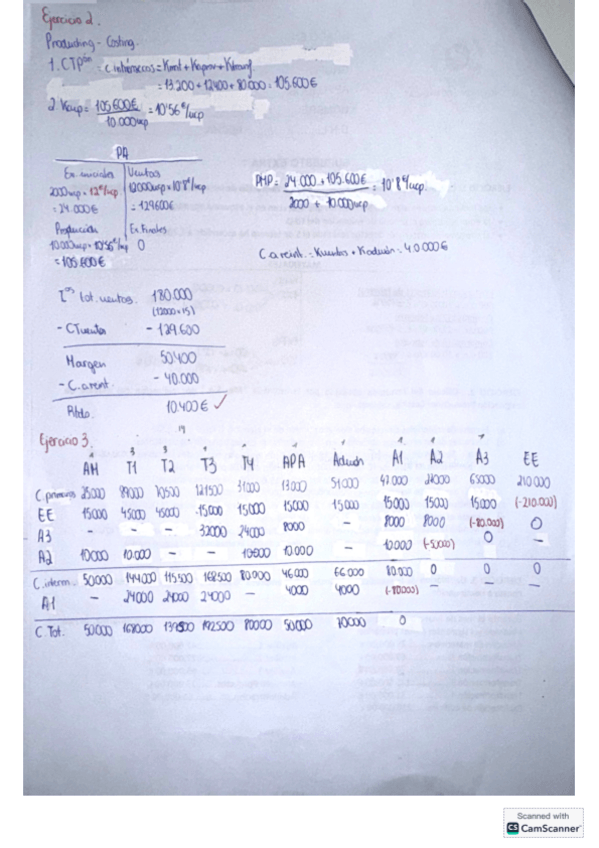 Ejercicio 2.
Producting - Costing.
1. CTPón = C. intrínsecos = Kmat + Kaprov + Ktransf.
= 13200 + 12400 + 80000 = 105.600 €
2. Kucp = 105.600€ / 10.000ucp = 10'56 €/ucp
PA
Ex. iniciales Ventas
2000ucp × 12€/ucp 12000ucp × 10'8€/ucp
= 24.000€ = 129600€
Producción Ex. Finales
10.000ucp × 10'56€/ucp 0
= 105.600€
PMP = 24.000 + 105.600€ / 2000 + 10.000ucp = 10'8€/ucp.
= Kventas + Kadmón = 40.000€
tot. ventas. 180.000
(12000×15)
- CTventas - 129.600
Margen 50400
- - 40.000
Rtdo. 10.400€ ✓
Ejercicio 3.
AM T1 T2 T3 T4 APA Admón A1 A2 A3 EE
C. primarios 25000 99000 70500 121500 31000 13000 51000 47000 65000 210000
EE 15000 45000 45000 15000 15000 15000 15000 15000 15000 15000 (-210.000)
A3 - - - 32000 24000 8000 - 8000 8000 (-80.000) 0
A2 10000 10.000 - - 10000 10.000 - 10000 (-50000) 0 -
C. interm. 50000 144000 115500 168500 80000 46000 66000 80000 0 0 0
A1 - 24000 24000 24000 - 4000 4000 (-80000) - - -
C. Tot. 50000 168000 139500 192500 80000 50000 70000 0
Scanned with
CS CamScanner